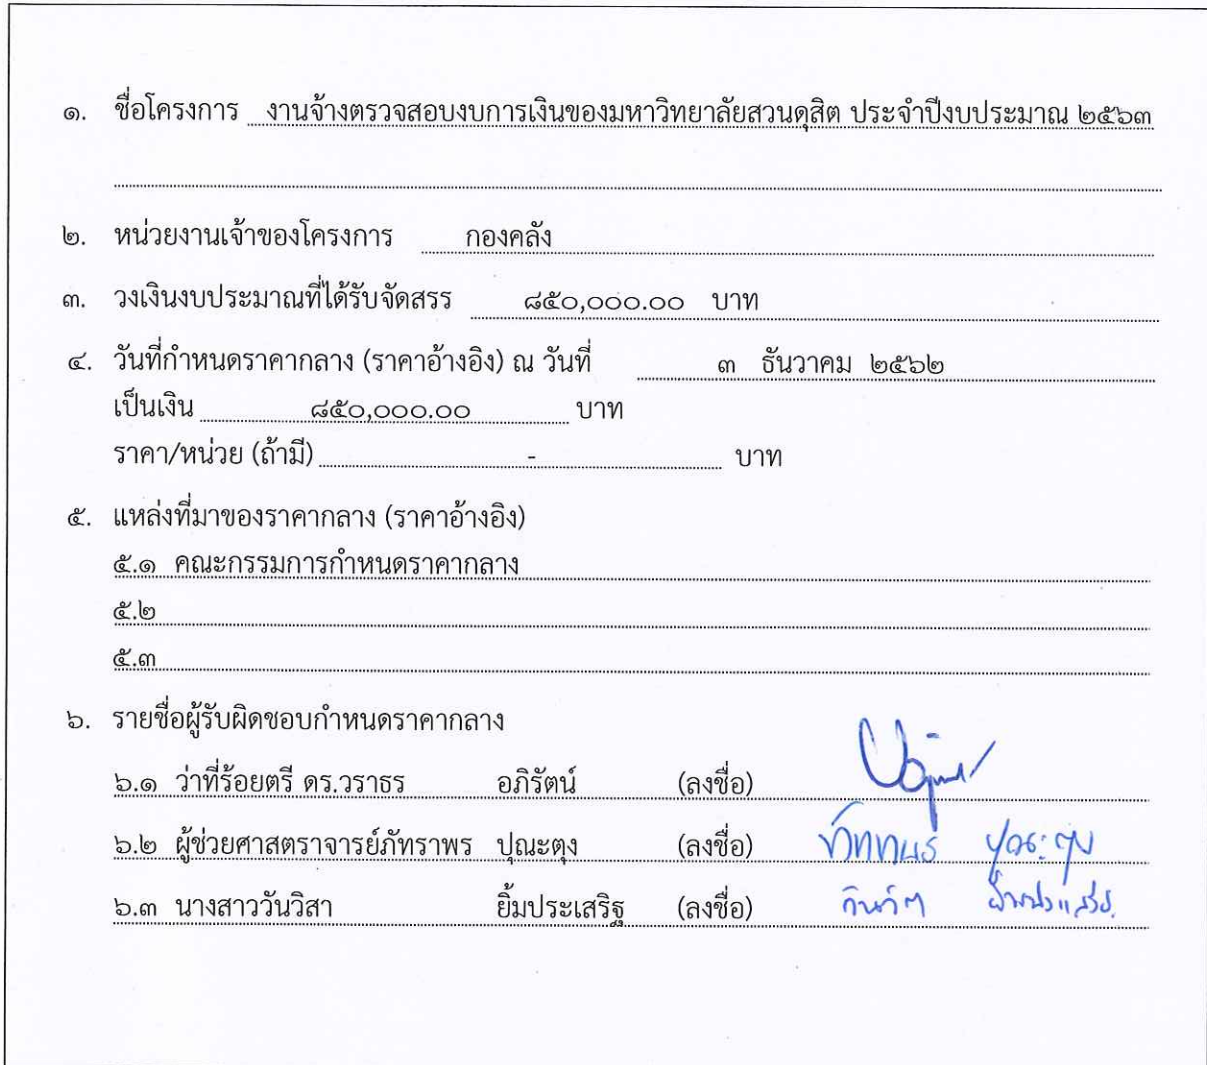 ๑. ชื่อโครงการ งานจ้างตรวจสอบงบการเงินของมหาวิทยาลัยสวนดุสิต ประจำปีงบประมาณ ๒๕๖๓
๒. หน่วยงานเจ้าของโครงการ กองคลัง
๓. วงเงินงบประมาณที่ได้รับจัดสรร ๘๕๐,๐๐๐.๐๐ บาท
๔. วันที่กำหนดราคากลาง (ราคาอ้างอิง) ณ วันที่ ๓ ธันวาคม ๒๕๖๒
เป็นเงิน ๘๕๐,๐๐๐.๐๐ บาท
ราคา/หน่วย (ถ้ามี) - บาท
๕. แหล่งที่มาของราคากลาง (ราคาอ้างอิง)
๕.๑ คณะกรรมการกำหนดราคากลาง
๕.๒
๕.๓
๖. รายชื่อผู้รับผิดชอบกำหนดราคากลาง
๖.๑ ว่าที่ร้อยตรี ดร.วราธร อภิรัตน์ (ลงชื่อ)
๖.๒ ผู้ช่วยศาสตราจารย์ภัทราพร ปุณะตุง (ลงชื่อ) ปุณะตุง
๖.๓ นางสาววันวิสา ยิ้มประเสริฐ (ลงชื่อ)